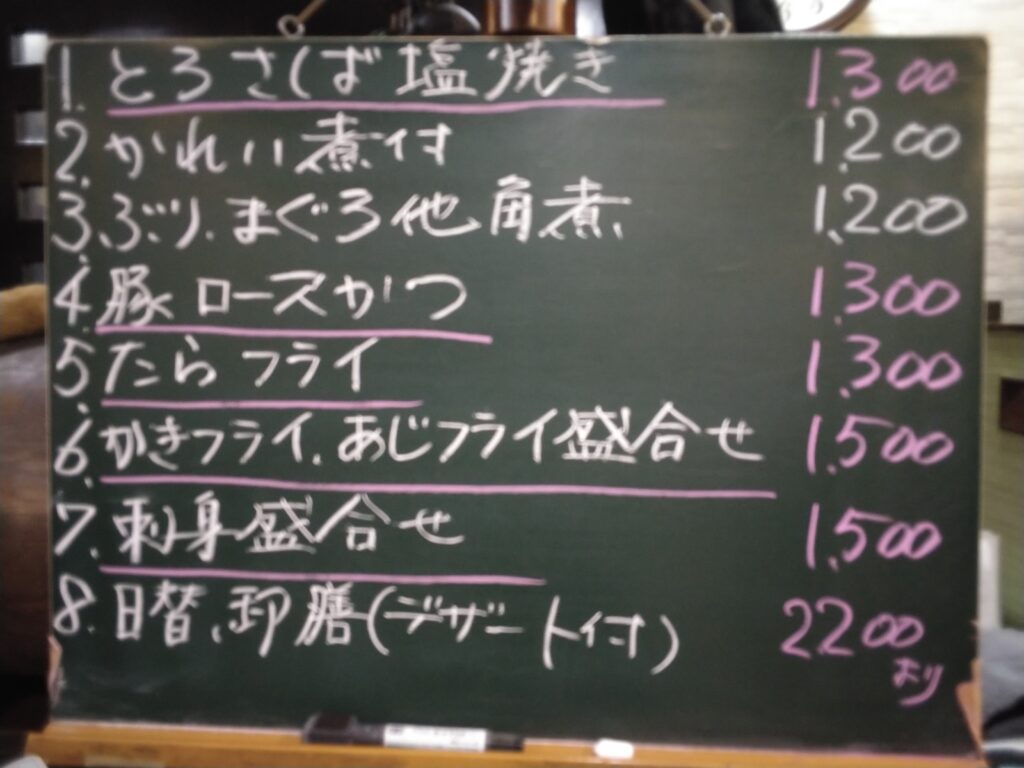 1. とろさば塩焼き 1,300
2. かれい煮付 1,200
3. ぶり、まぐろ他角煮 1,200
4. 豚ロースかつ 1,300
5. たらフライ 1,300
6. かきフライ、あじフライ盛合せ 1,500
7. 刺身盛合せ 1,500
8. 日替、御膳(デザート付) 2200
より